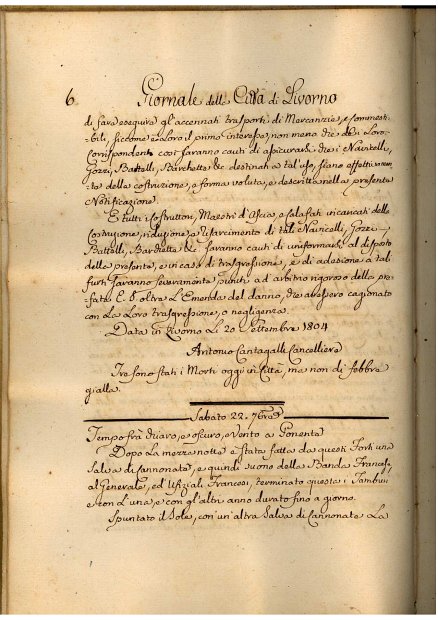 6 Giornale della Città di Livorno
di fare eseguire gl'accennati trasporti di Mercanzie, e Commesti-
bili, siccome è Loro il primo interesse, non meno che dei Loro
Corrispondenti così saranno cauti di assicurarsi che i Navicelli,
Gozzi, Battelli, Barchette &c destinati a tal'uso, siano effettivamen-
te della costruzione, e forma voluta, e descritta nella presente
Notificazione.
E tutti i Costruttori, Maestri d'Ascia, e Calafati incaricati della
Costruzione, riduzione, e risarcimento di tali Navicelli, Gozzi
Battelli, Barchette &c saranno cauti di uniformarsi al disposto
della presente, e in caso di trasgressione, e di adesione a tali
furti saranno severamente puniti ad arbitrio rigoroso della pre-
fata oltre L'Emenda del danno, che avessero cagionato
con La Loro trasgressione, o negligenza.
Data in Livorno Li 20 Settembre 1804
Antonio Cantagalli Cancelliere
Tre sono stati i Morti oggi in Città, ma non di febbre
gialla.
Sabato 22. 7bre
Tempo frà chiaro, e oscuro, e Vento a Ponente
Dopo La mezza notte è stata fatta da questi Forti una
Salva di Cannonate, e quindi suono della Banda Francese
al Generale, ed Ufiziali Francesi, terminato questa i Tamburi
e con L'una, e con gl'altri anno durato fino a giorno.
Spuntato il Sole, con un'altra Salva di Cannonate La